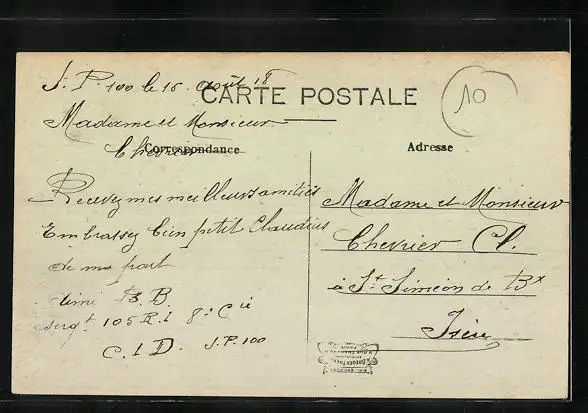 S. P. 100 le 16 août 18
CARTE POSTALE
10
Madame et Monsieur
Chevrier
Correspondance
Adresse
Recevez mes meilleurs amitiés
Embrassez bien petit Claudius
de ma part
B. B.
Sergt 105 R. I 8e Cie
C. I D. S. P. 100
Madame et Monsieur
Chevrier Cl.
à St Siméon de Bx
Isère